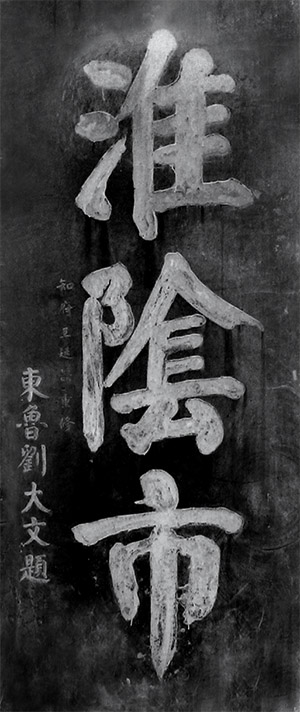 淮陰市
東魯劉大文題